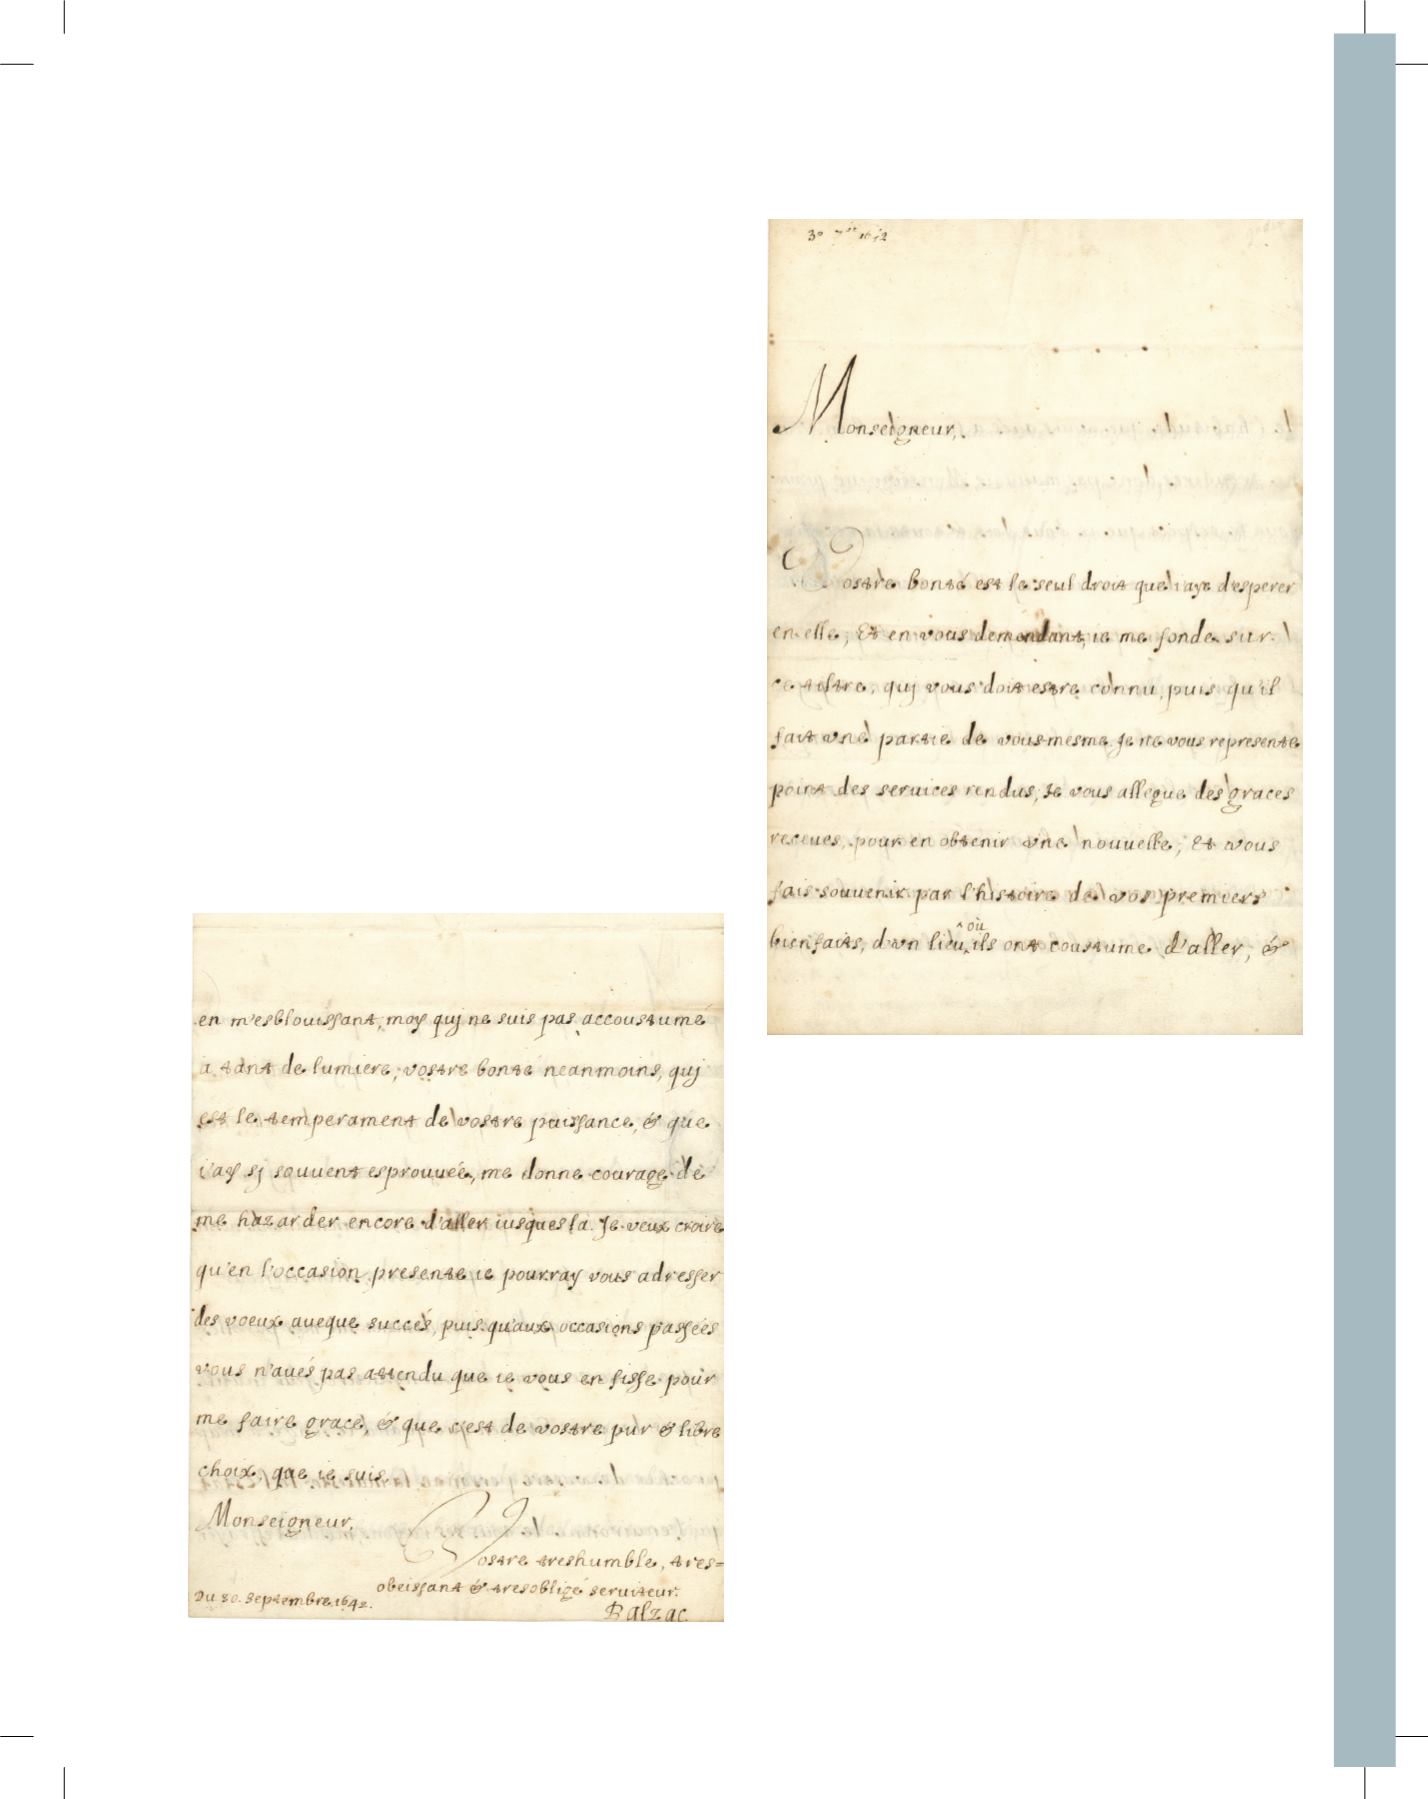 30 7bre 1642
Monseigneur,
Vostre bonté est le seul droit que i'aye d'esperer
en elle, Et en vous demandant, ie me fonde sur
ce tiltre, quj vous doit estre connu, puis qu'il
fait vne partie de vous-mesme. Je ne vous represente
point des seruices rendus, Je vous allegue des graces
receues, pour en obtenir vne nouuelle, Et vous
fais souuenir par l'histoire de vos premiers
bienfaits, d'vn lieu, où ils ont coustume d'aller, &
en m'esblouissant, moy quj ne suis pas accoustumé
a tant de lumiere, vostre bonté neanmoins, quj
est le temperament de vostre puissance, & que
i'ay sj souuent esprouuée, me donne courage de
me hazarder encore d'aller iusques la. Je veux croire
qu'en l'occasion presente ie pourray vous adresser
des voeux aueque succés, puis qu'aux occasions passées
vous n'aués pas attendu que ie vous en fisse pour
me faire grace, & que c'est de vostre pur & libre
choix, que ie suis
Monseigneur,
Vostre treshumble, tres=
obeissant & tresobligé seruiteur.
Du 30. Septembre 1642.
Balzac